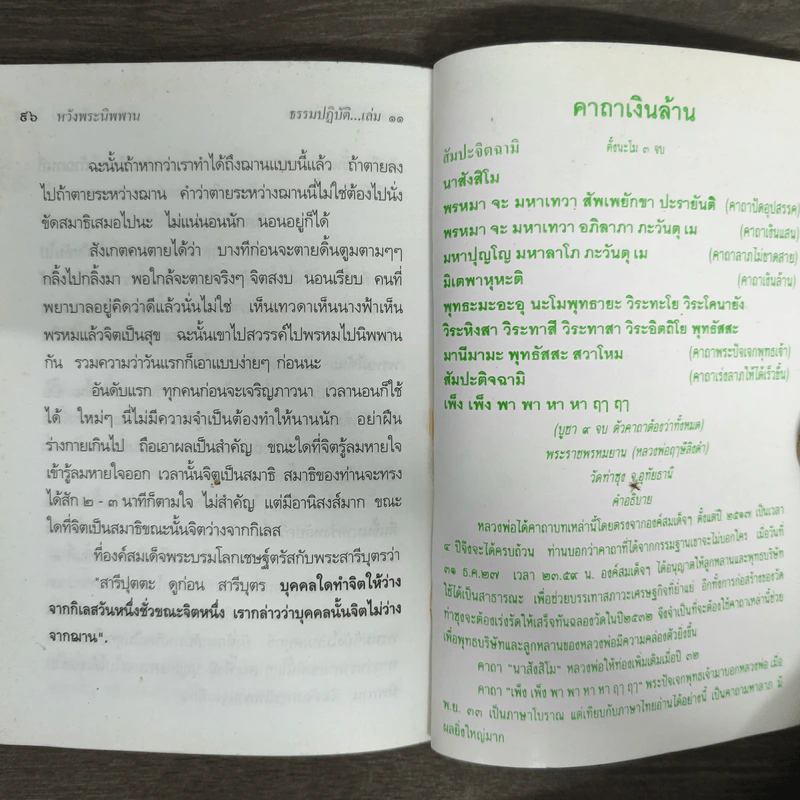 ๕๖ หวังพระนิพพาน ธรรมปฏิบัติ...เล่ม ๑๑
ฉะนั้นถ้าหากว่าเราทำได้ถึงฌานแบบนี้แล้ว ถ้าตายลง
ไปถ้าตายระหว่างฌาน คำว่าตายระหว่างฌานนี่ไม่ใช่ต้องไปนั่ง
ขัดสมาธิเสมอไปนะ ไม่แน่นอนนัก นอนอยู่ก็ได้
สังเกตคนตายได้ว่า บางทีก่อนจะตายดิ้นตูมตามๆๆ
กลิ้งไปกลิ้งมา พอใกล้จะตายจริงๆ จิตสงบ นอนเรียบ คนที่
พยาบาลอยู่คิดว่าดีแล้วนั่นไม่ใช่ เห็นเทวดาเห็นนางฟ้าเห็น
พรหมแล้วจิตเป็นสุข ฉะนั้นเขาไปสวรรค์ไปพรหมไปนิพพาน
กัน รวมความว่าวันแรกก็เอาแบบง่ายๆ ก่อนนะ
อันดับแรก ทุกคนก่อนจะเจริญภาวนา เวลานอนก็ใช้
ได้ ใหม่ๆ นี่ไม่มีความจำเป็นต้องทำให้นานนัก อย่าฝืน
ร่างกายเกินไป ถือเอาผลเป็นสำคัญ ขณะใดที่จิตรู้ลมหายใจ
เข้ารู้ลมหายใจออก เวลานั้นจิตเป็นสมาธิ สมาธิของท่านจะทรง
ได้สัก ๒ - ๓ นาทีก็ตามใจ ไม่สำคัญ แต่มีอานิสงส์มาก ขณะ
ใดที่จิตเป็นสมาธิขณะนั้นจิตว่างจากกิเลส
ที่องค์สมเด็จพระบรมโลกเชษฐ์ตรัสกับพระสารีบุตรว่า
"สารีปุตตะ ดูก่อน สารีบุตร บุคคลใดทำจิตให้ว่าง
จากกิเลสวันหนึ่งชั่วขณะจิตหนึ่ง เรากล่าวว่าบุคคลนั้นจิตไม่ว่าง
จากฌาน".
คาถาเงินล้าน
สัมปะจิตฉามิ ตั้งนะโม ๓ จบ
นาสังสิโม
พรหมา จะ มหาเทวา สัพเพยักขา ปะรายันติ (คาถาปัดอุปสรรค)
พรหมา จะ มหาเทวา อภิลาภา ภะวันตุ เม (คาถาเงินแสน)
มหาปุญโญ มหาลาโภ ภะวันตุ เม (คาถาลาภไม่ขาดสาย)
มิเตพาหุหะติ (คาถาเงินล้าน)
พุทธะมะอะอุ นะโมพุทธายะ วิระทะโย วิระโคนายัง
วิระหิงสา วิระทาสี วิระทาสา วิระอิตถิโย พุทธัสสะ
มานีมามะ พุทธัสสะ สวาโหม (คาถาพระปัจเจกพุทธเจ้า)
สัมปะติจฉามิ (คาถาเร่งลาภให้ได้เร็วขึ้น)
เพ็ง เพ็ง พา พา หา หา ฤๅ ฤๅ
(บูชา ๙ จบ ตัวคาถาต้องว่าทั้งหมด)
พระราชพรหมยาน (หลวงพ่อฤๅษีลิงดำ)
วัดท่าซุง จ.อุทัยธานี
คำอธิบาย
หลวงพ่อได้คาถาบทเหล่านี้โดยตรงจากองค์สมเด็จฯ ตั้งแต่ปี ๒๕๑๗ เป็นเวลา
๔ ปีจึงจะได้ครบถ้วน ท่านบอกว่าคาถาที่ได้จากกรรมฐานเขาจะไม่บอกใคร เมื่อวันที่
๓๑ ธ.ค.๒๗ เวลา ๒๓.๕๙ น. องค์สมเด็จฯ ได้อนุญาตให้ลูกหลานและพุทธบริษัท
ใช้ได้เป็นสาธารณะ เพื่อช่วยบรรเทาสภาวะเศรษฐกิจที่ย่ำแย่ อีกทั้งการก่อสร้างของวัด
ท่าซุงจะต้องเร่งรัดให้เสร็จทันฉลองวัดในปี๒๕๓๒ จึงจำเป็นที่จะต้องใช้คาถาเหล่านี้ช่วย
เพื่อพุทธบริษัทและลูกหลานของหลวงพ่อมีความคล่องตัวยิ่งขึ้น
คาถา "นาสังสิโม" หลวงพ่อให้ท่องเพิ่มเติมเมื่อปี ๓๒
คาถา "เพ็ง เพ็ง พา พา หา หา ฤๅ ฤๅ" พระปัจเจกพุทธเจ้ามาบอกหลวงพ่อ เมื่อ
พ.ย. ๓๓ เป็นภาษาโบราณ แต่เทียบกับภาษาไทยอ่านได้อย่างนี้ เป็นคาถามหาลาภ มี
ผลยิ่งใหญ่มาก